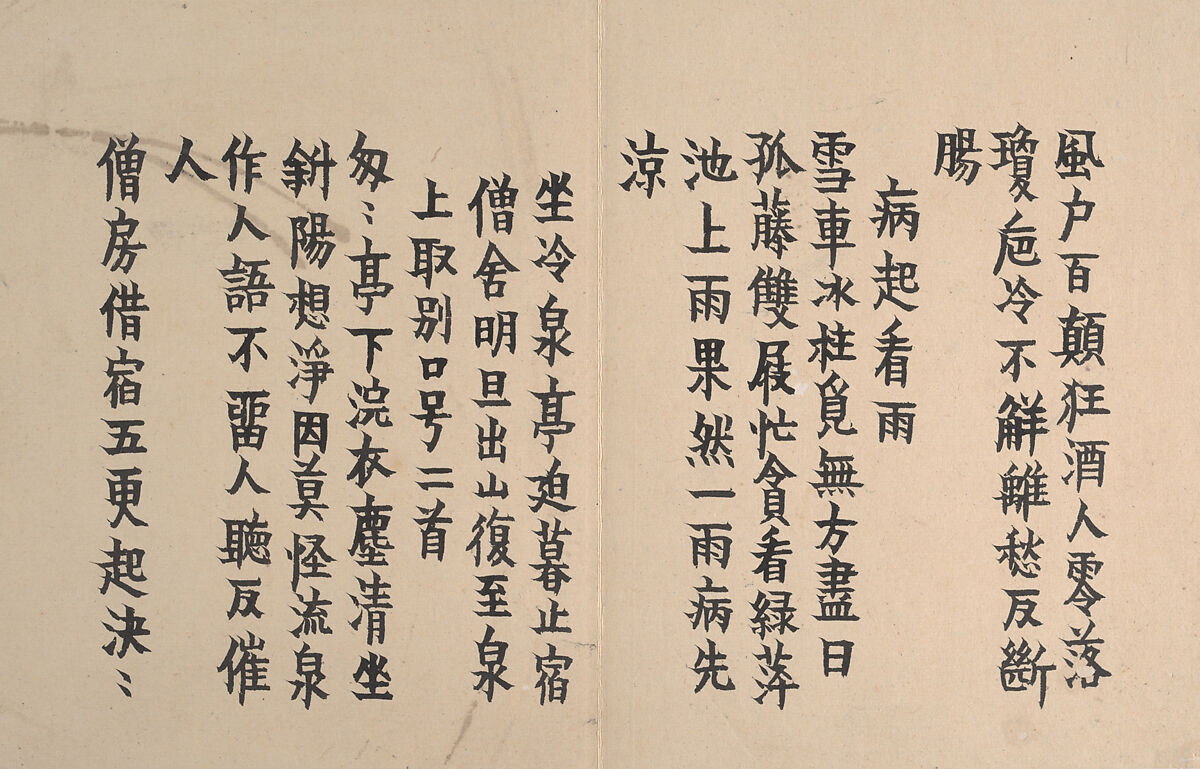 風户百顛狂酒人零落
瓊卮冷不觧離愁反斷
腸
病起看雨
雪車冰柱覓無方盡日
孤藤雙屐忙貪看緑萍
池上雨果然一雨病先
涼
坐冷泉亭迫暮止宿
僧舍明旦出山復至泉
上取别口号二首
匆〻亭下浣衣塵清坐
斜陽想淨因莫怪流泉
作人語不畱人聽反催
人
僧房借宿五更起決〻